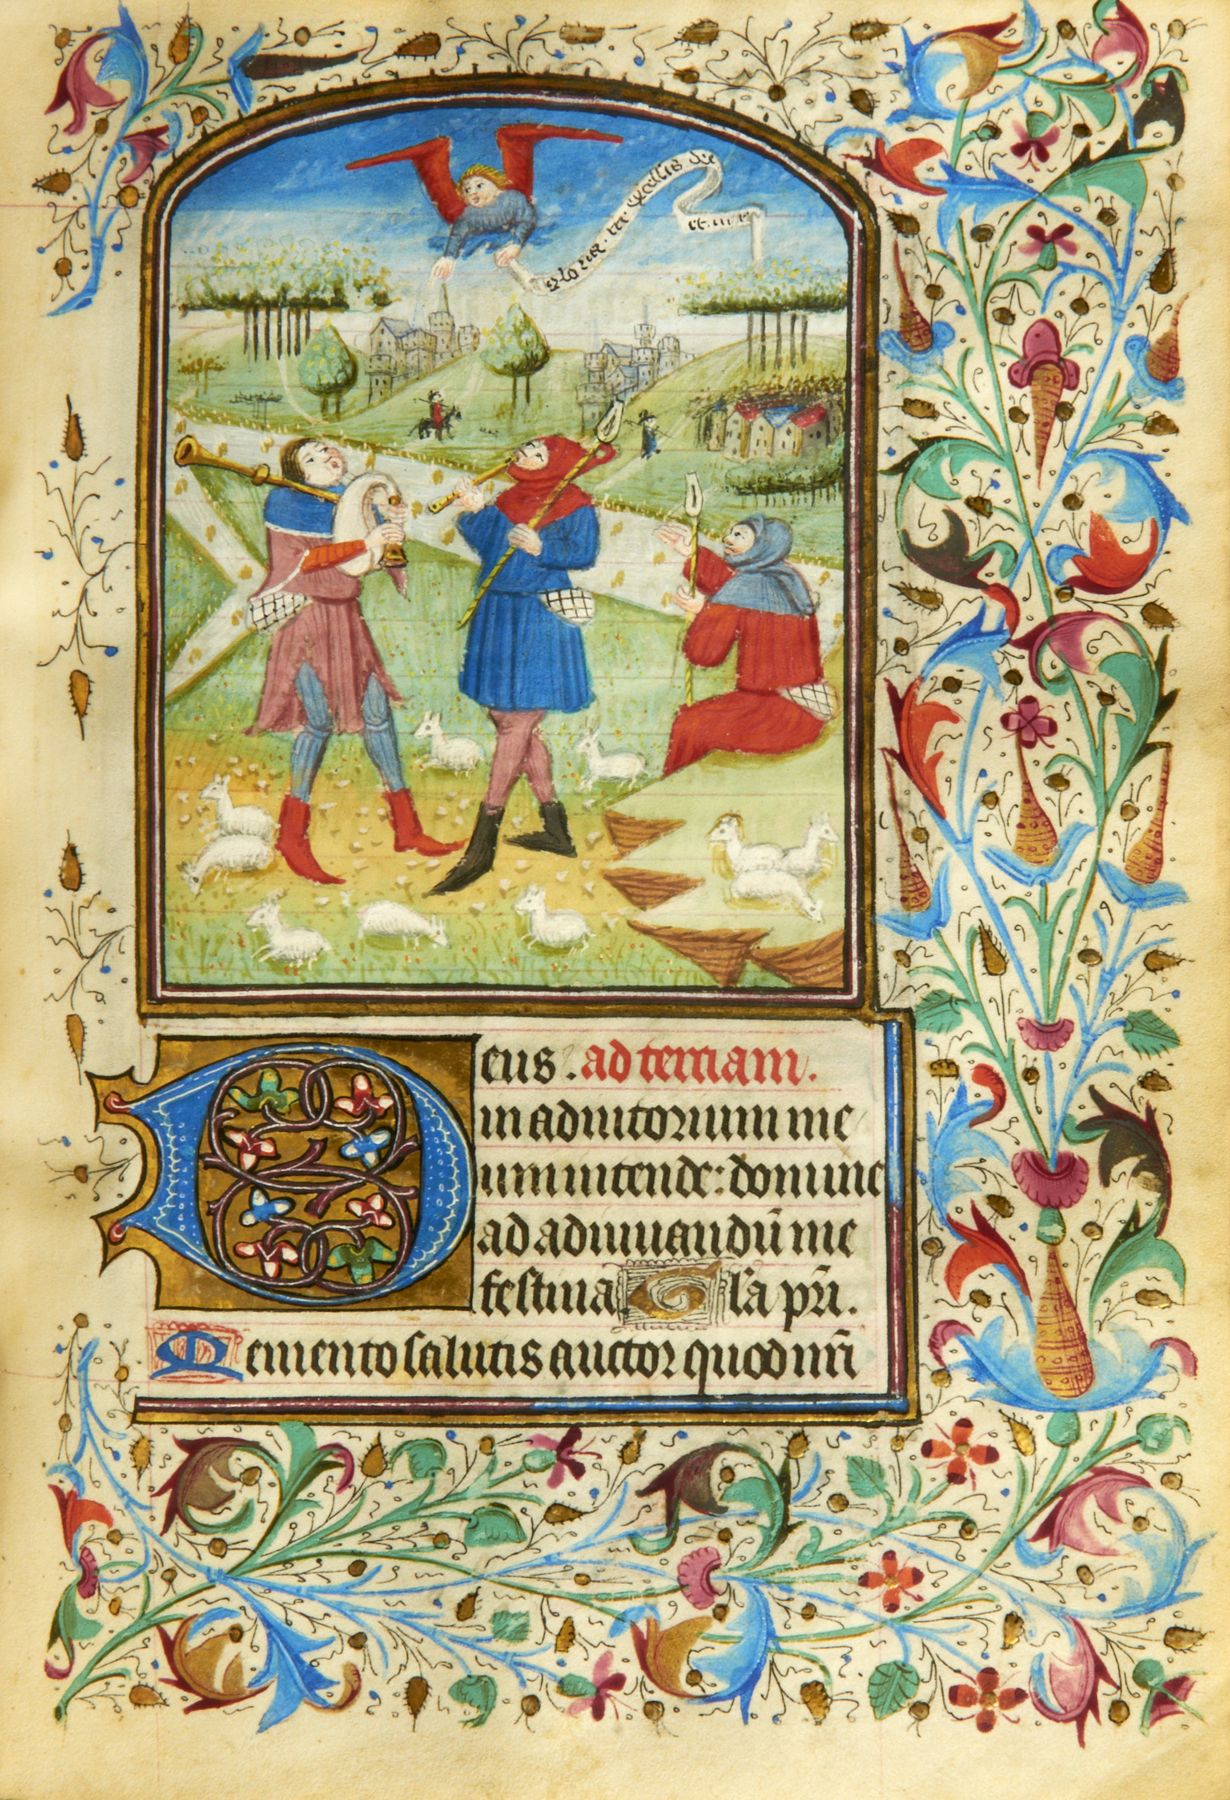 gloria in excelsis deo
et in t
Deus. ad terciam.
in adiutorium me
um intende: domine
ad adiuuandū me
festina. Gl'a pr̄i.
Memento salutis auctor quod nr̄i